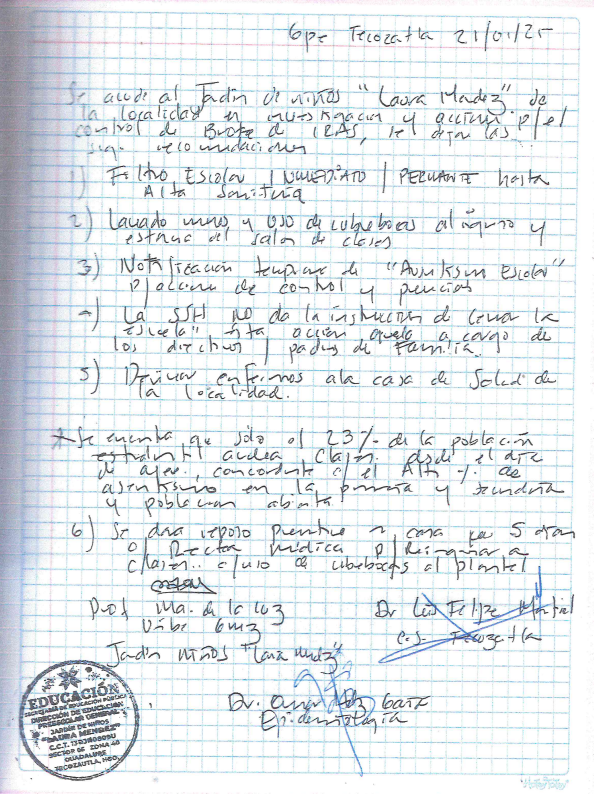 Gpe Tecozautla 21/01/25
Se acude al Jardin de niños "Laura Mendez" de
la localidad en investigacion y accion p/el
control de Brote de IRAS, se dejan las
sig. recomendaciones
1) Filtro Escolar / INMEDIATO / PERMANTE hasta
Alta Sanitaria
2) Lavado manos y uso de cubrebocas al ingreso y
estancia del salon de clases
3) Notificación temprana de "Ausentismo Escolar"
p/accion de control y
4) La SSH no da la instruccion de cerrar la
escuela" esta accion queda a cargo de
los directivos / padres de Familia.
5) Derivar enfermos a la casa de Salud de
la localidad.
* Se encuentra que sólo el 23% de la población
estudiantil acudea clases desde el dia
de ayer, concordante c/ el Alto % de
ausentismo en la primaria y secundaria
y poblacion abierta
6) Se dara reposo preventivo en casa por 5 dias
o/ Receta médica p/Reingresar a
clases.. c/uso de cubrebocas al plantel
Prof Ma. de la luz
Uribe Gmz
Jardin niños "Laura Mendez"
Dr Luis Felipe
C.S. Tecozautla
Dr. Omar
Epidemiología
EDUCACIÓN
SECRETARÍA DE EDUCACIÓN PÚBLICA
DIRECCIÓN DE EDUCACIÓN
PREESCOLAR GENERAL
JARDÍN DE NIÑOS
"LAURA MENDEZ"
SECTOR 06 ZONA 40
GUADALUPE
TECOZAUTLA, HGO.